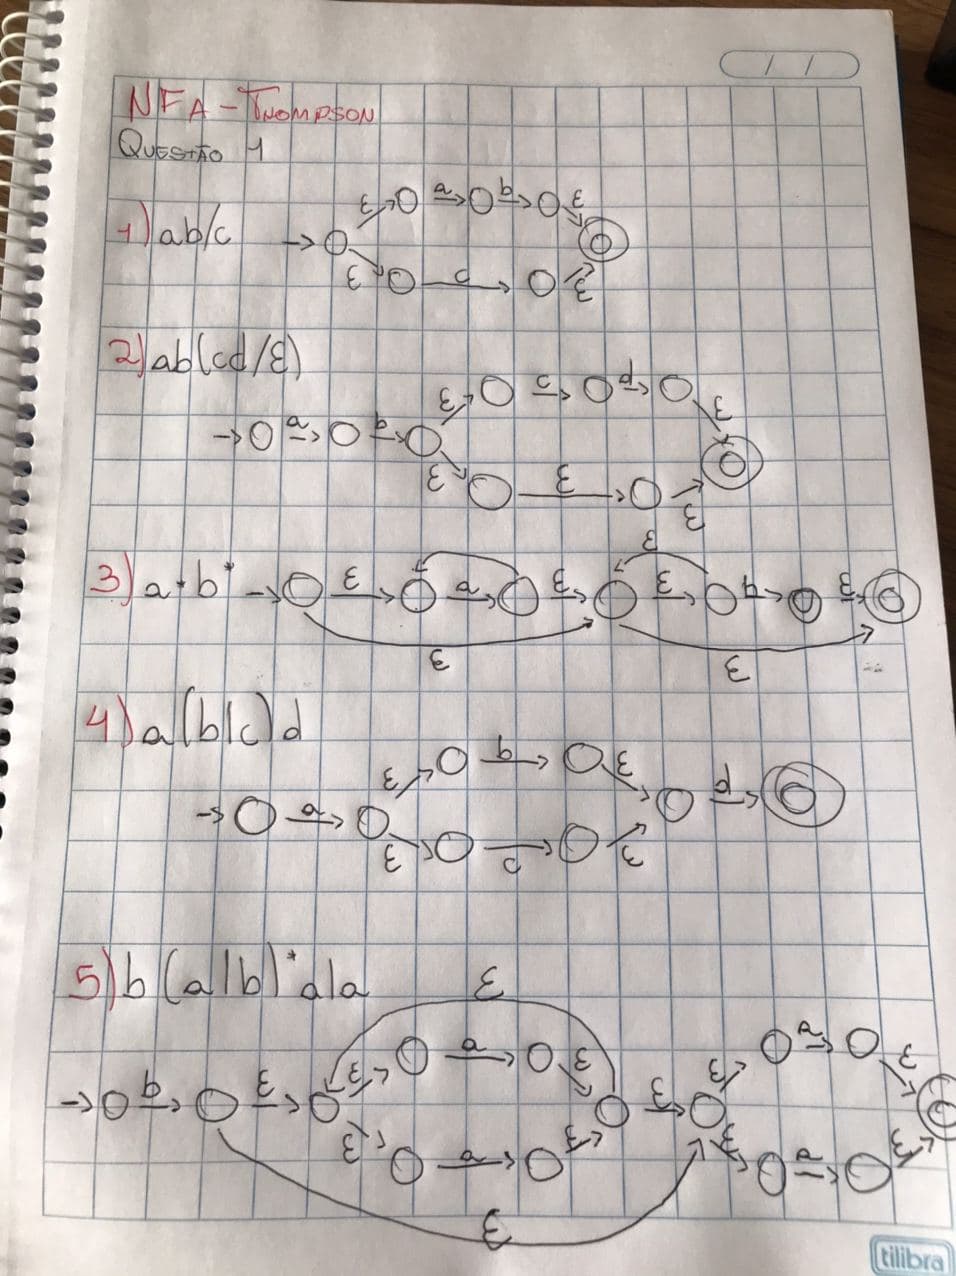 / /
NFA - THOMPSON
QUESTÃO 1
1) ab/c → ε a b ε
ε c ε
2) ab(cd/ε)
→ a b ε c d ε
ε ε ε
3) a*b* → ε a ε ε ε b ε
ε ε
4) a(b|c)d
→ a ε b ε d
ε c ε
5) b(a|b)*a|a
ε
→ b ε ε a ε ε ε a ε
ε a ε ε a ε
ε
tilibra